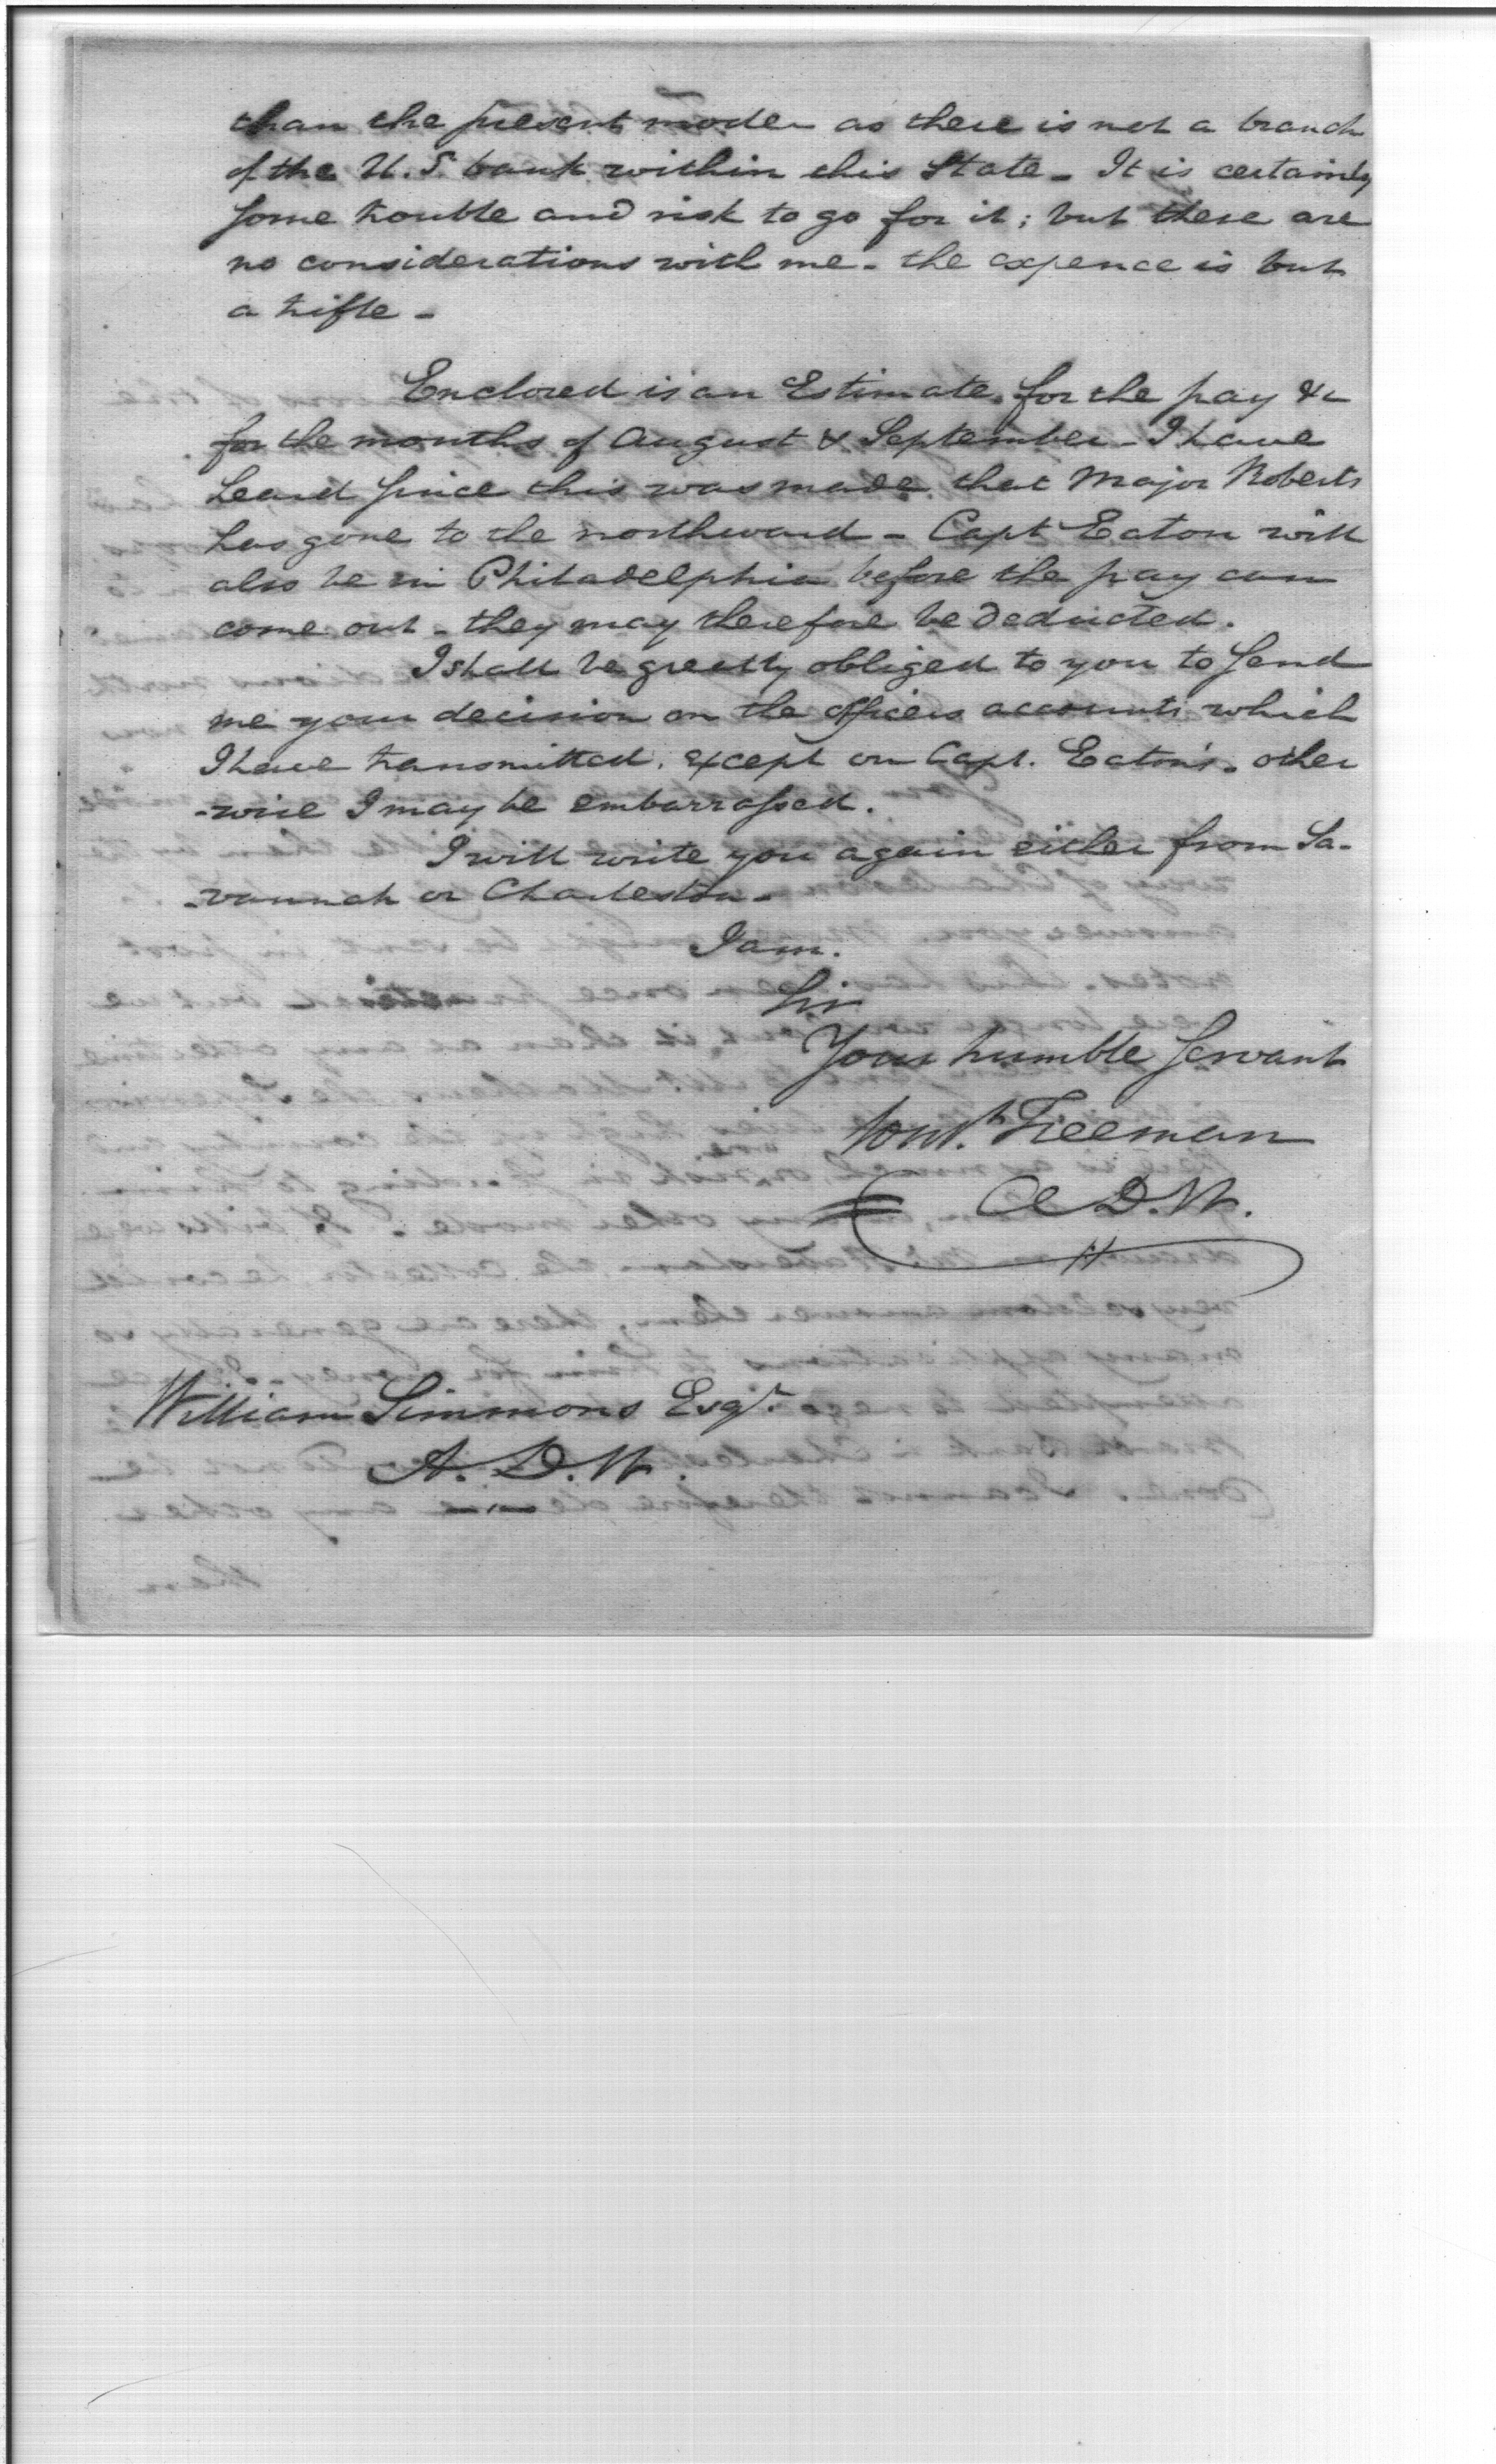 than the present mode as there is not a branch
of the U.S. bank within this State - It is certainly
some trouble and risk to go for it; but these are
no considerations with me - the expence is but
a trifle -
Enclosed is an Estimate for the pay &c
for the months of August & September - I have
heard since this was made that Major Roberts
has gone to the northward - Capt Eaton will
also be in Philadelphia before the pay can
come out - they may therefore be deducted.
I shall be greatly obliged to you to send
me your decision on the officers accounts which
I have transmitted, except on Capt. Eaton's - other
-wise I may be embarrassed.
I will write you again either from Sa-
-vannah or Charleston -
I am.
Sir
Your humble servant
Const. Freeman
A D. W.
William Simmons Esqr.
A. D. W.